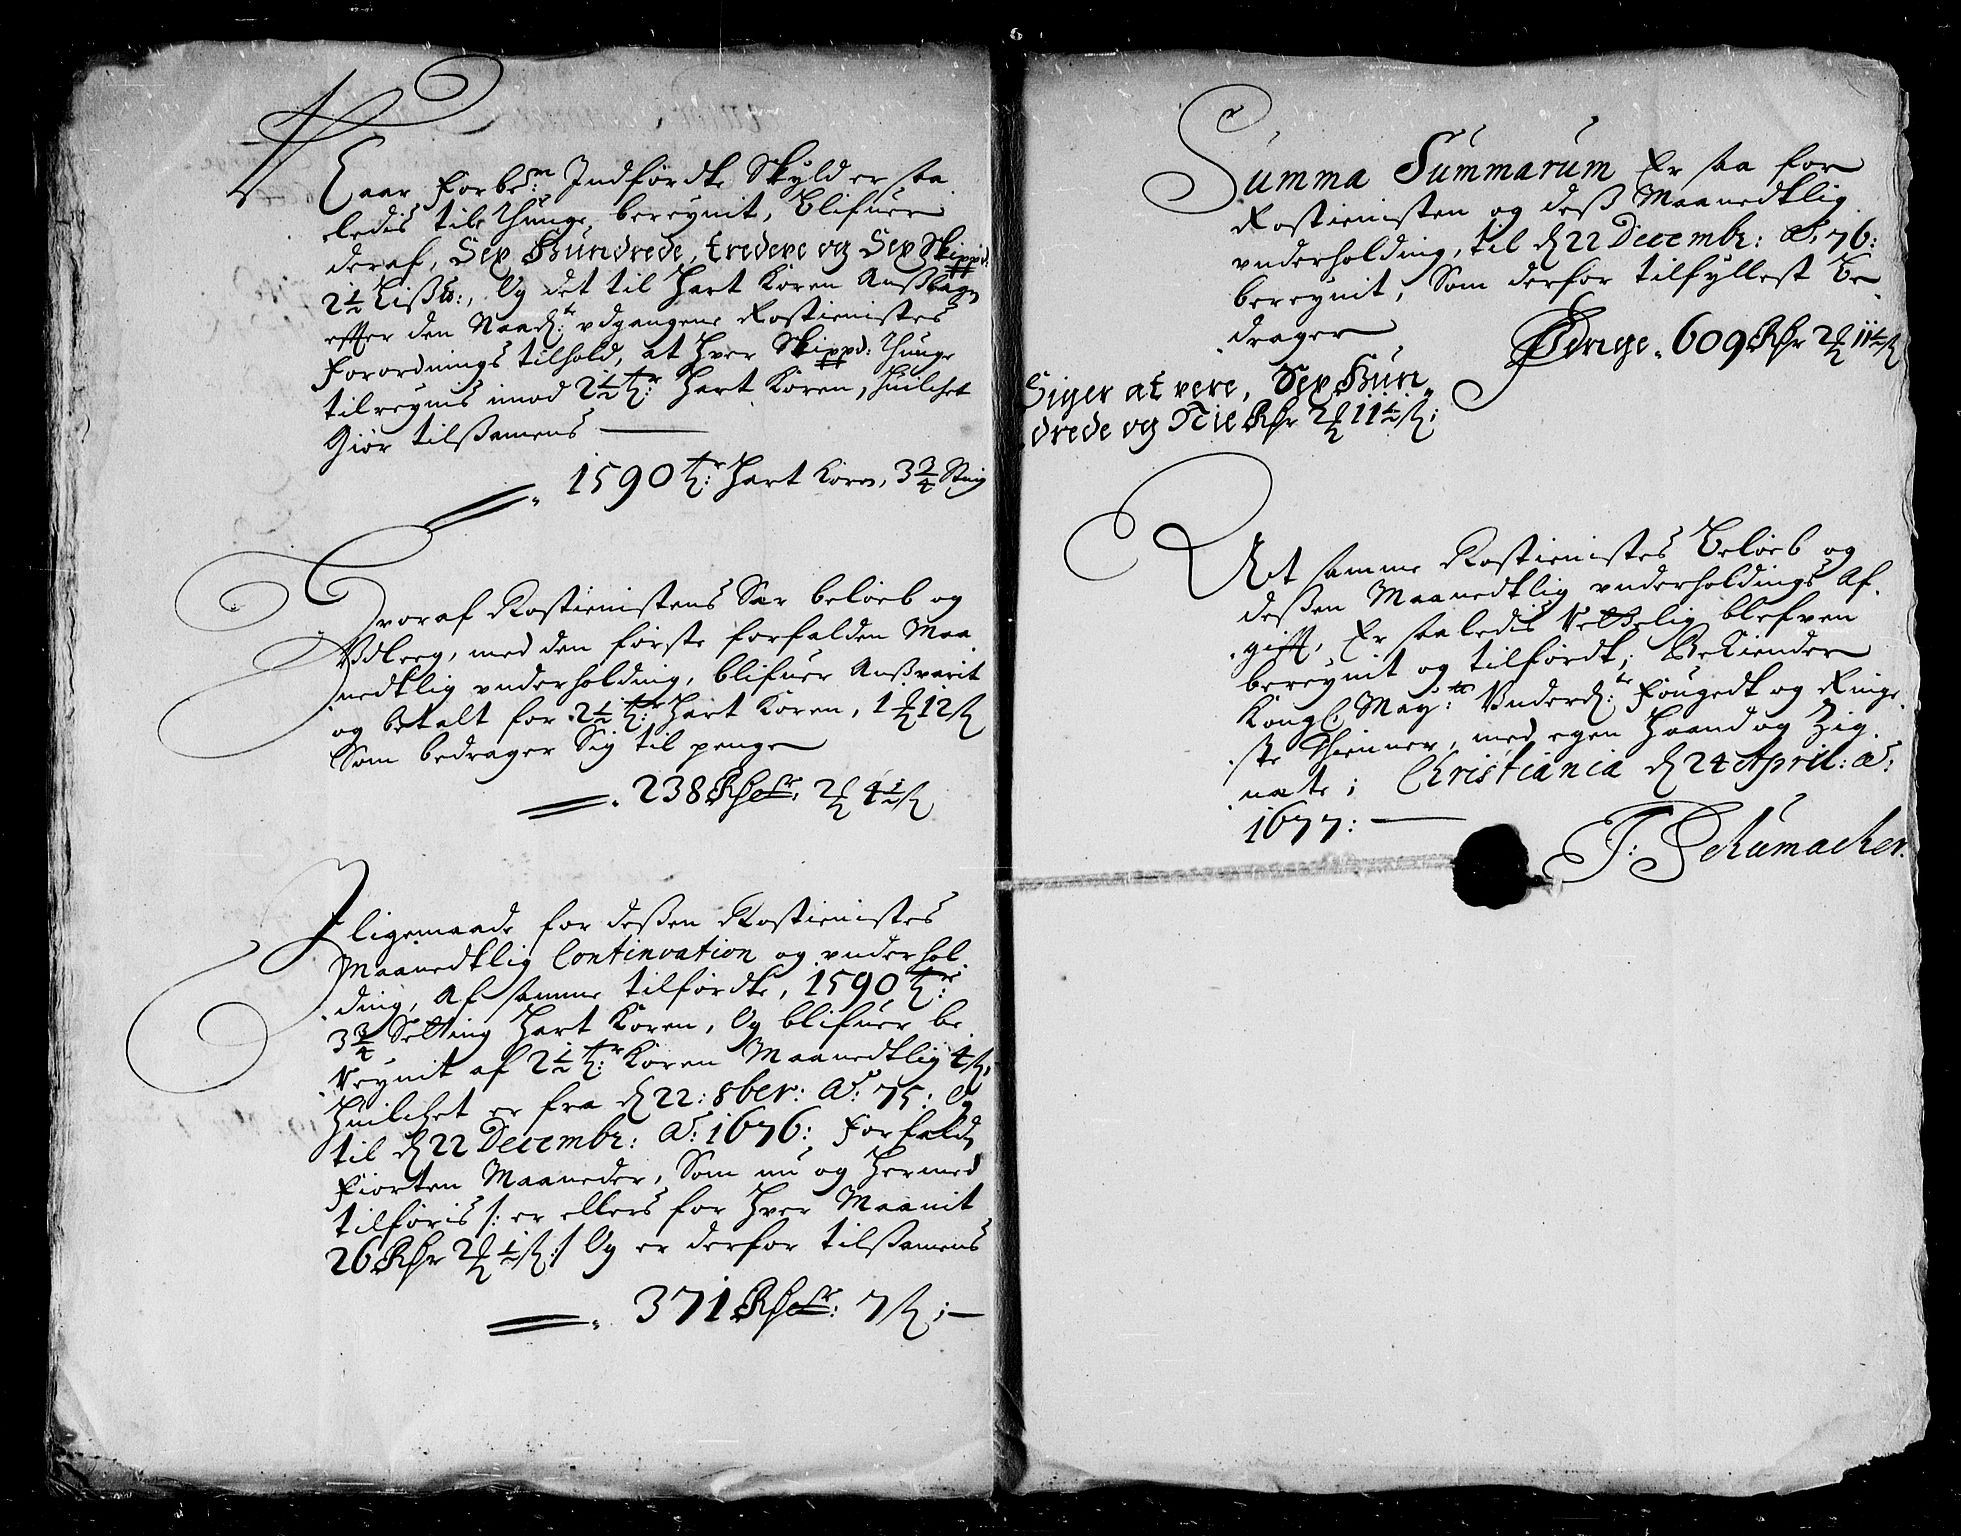 Naar forbe:m Indførdte Skyld er saa
ledis till Thunge bereynit, blifuer
deraf, Sex Hundrede, tredeve og Sex Skippd:
2½ Liß℔:, Og det til Hart Koren Anßlagn
effter den Naad:te udgangene Rostienistes
Forordnings tilhold, at Hver Skippd: Thunge
tilregnis imod 2½ tr: Hart Koren, huilchet
Giør tilßamens
1590 tr: Hart Korn, 3¾ Sting
Hvoraf Rostienistens Sær beløeb og
Udleeg, med den første forfalden Maa
nedtlig underholding, blifuer Anßvarit
og betalt for 2½ tr: Hart Koren, 1 ℔ 12 ß
Som bedrager Sig til penge
238 Rheℓr: 2 ℔ 4½ ß
I ligemaade for deßen Rostienistes
Maanedtlig Continvation og underhol
ding, Af samme tilførdte, 1590 tr:
3¾ Setting Hart Koren, Og blifuer be
reynit af 2½ tr: Koren Maanedtlig 4 ß,
Huilchet er fra d 22: 8ber: Ao: 75: Og
til d 22 Decembr: Ao: 1676: forfaldn
fiorten Maaneder, Som nu og Hermed
tilføris /: er ellers for Hver Maanit
26 Rhr 2 ℔ ½ ß :/ Og er derfor tilßamens
371 Rheℓr: 7 ß ;
Summa Summarum Er saa for
Rostienisten og deß Maanedtlig
underholding, til d 22 Decembr: Ao: 76:
bereynit, Som derfor tilfyllest be
drager
Penge. 609 Rhr 2 ℔ 11½ ß
Siger at vere, Sex Hun
drede og Nie Rhr 2 ℔ 11½ ß:
At samme Rostienistes beløeb og
deßen Maanedtlig underholdings Af
gifft, Er saaledis Rettelig blefven
bereynit og tilførdt; Bekiender
Kongl: May:tts Underd:te Fougedt og Ringe
ste Thienner, med egen Haand og Zig
nete; Christiania d 24 April: Ao:
1677:
J: Schumacher.